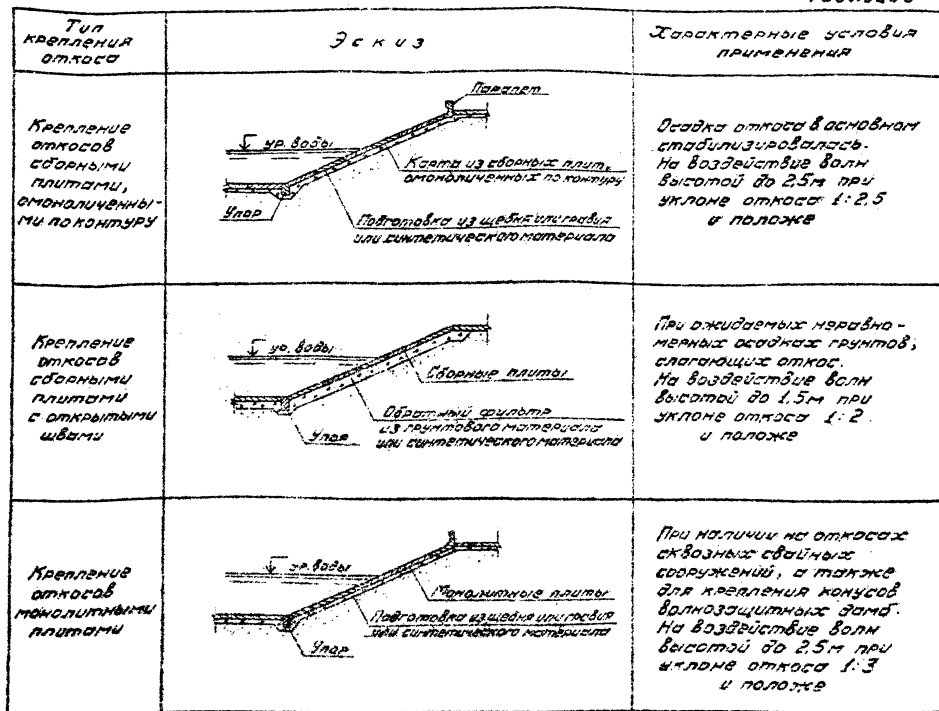 Тип
крепления
откоса
Эскиз
Характерные условия
применения
Крепление
откосов
сборными
плитами,
омоноличенны-
ми по контуру
Парапет
ур. воды
Карта из сборных плит,
омоноличенных по контуру
Упор
Подготовка из щебня или гравия
или синтетического материала
Осадка откоса в основном
стабилизировалась.
На воздействие волн
высотой до 2,5м при
уклоне откоса 1:2,5
и положе
Крепление
откосов
сборными
плитами
с открытыми
швами
ур. воды
Сборные плиты
Обратный фильтр
из грунтового материала
или синтетического материала
Упор
При ожидаемых неравно-
мерных осадках грунтов,
слагающих откос.
На воздействие волн
высотой до 1,5м при
уклоне откоса 1:2.
и положе
Крепление
откосов
монолитными
плитами
ур. воды
Монолитные плиты
Подготовка из щебня или гравия
или синтетического материала
Упор
При наличии на откосах
сквозных свайных
сооружений, а также
для крепления конусов
волнозащитных дамб.
На воздействие волн
высотой до 2,5м при
уклоне откоса 1:3
и положе